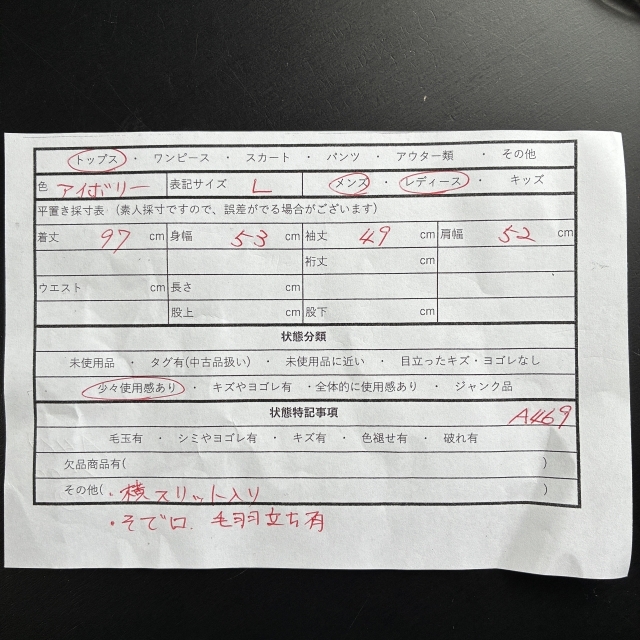 トップス ・ ワンピース ・ スカート ・ パンツ ・ アウター類 ・ その他
色 アイボリー 表記サイズ L メンズ ・ レディース ・ キッズ
平置き採寸表 (素人採寸ですので、誤差がでる場合がございます)
着丈 97 cm 身幅 53 cm 袖丈 49 cm 肩幅 52 cm
裄丈 cm
ウエスト cm 長さ cm
股上 cm 股下 cm
状態分類
未使用品 ・ タグ有(中古品扱い) ・ 未使用品に近い ・ 目立ったキズ・ヨゴレなし
少々使用感あり ・ キズやヨゴレ有 ・全体的に使用感あり ・ ジャンク品
状態特記事項 A469
毛玉有 ・ シミやヨゴレ有 ・ キズ有 ・ 色褪せ有 ・ 破れ有
欠品商品有( )
その他(・横スリット入り )
・そで口. 毛羽立ち有